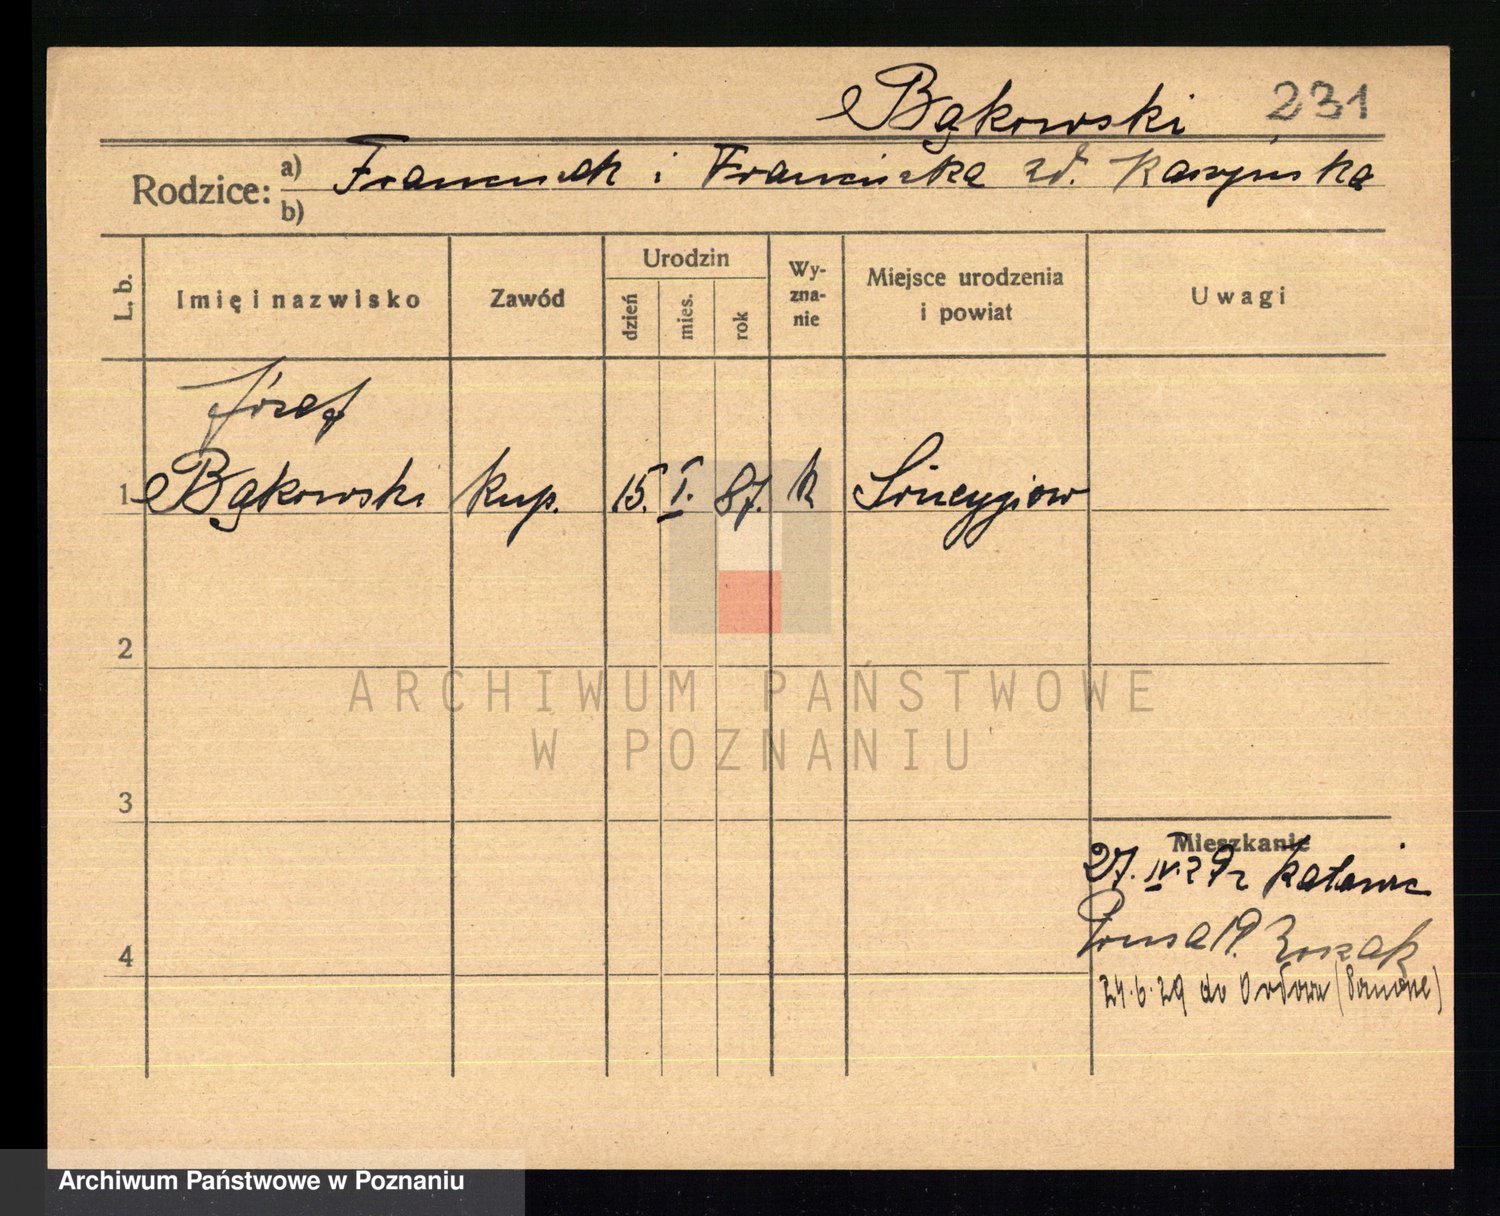 Bąkowski 231
Rodzice: a) Franciszek i Franciszka zd. Kaszyńska
b)
L. b. Imię i nazwisko Zawód Urodzin dzień mies. rok Wy-zna-nie Miejsce urodzenia i powiat Uwagi
Józef
1 Bąkowski kup. 15. I. 87. k
2
ARCHIWUM PAŃSTWOWE
W POZNANIU
3
Mieszkanie
27. IV. 29
4
24.6.29 do Orłowa
Archiwum Państwowe w Poznaniu